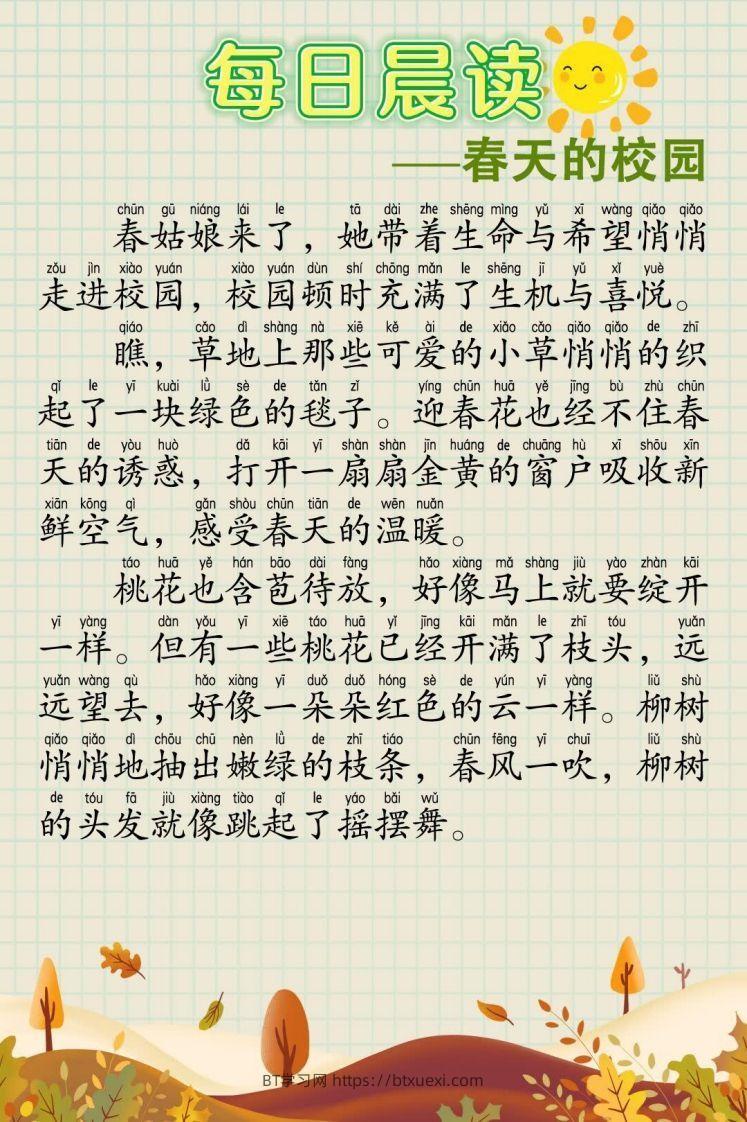 每日晨读
——春天的校园
chūn gū niáng lái le tā dài zhe shēng mìng yǔ xī wàng qiǎo qiǎo
春姑娘来了，她带着生命与希望悄悄
zǒu jìn xiào yuán xiào yuán dùn shí chōng mǎn le shēng jī yǔ xǐ yuè
走进校园，校园顿时充满了生机与喜悦。
qiáo cǎo dì shàng nà xiē kě ài de xiǎo cǎo qiǎo qiǎo de zhī
瞧，草地上那些可爱的小草悄悄的织
qǐ le yī kuài lǜ sè de tǎn zǐ yíng chūn huā yě jīng bù zhù chūn
起了一块绿色的毯子。迎春花也经不住春
tiān de yòu huò dǎ kāi yī shàn shàn jīn huáng de chuāng hù xī shōu xīn
天的诱惑，打开一扇扇金黄的窗户吸收新
xiān kōng qì gǎn shòu chūn tiān de wēn nuǎn
鲜空气，感受春天的温暖。
táo huā yě hán bāo dài fàng hǎo xiàng mǎ shàng jiù yào zhàn kāi
桃花也含苞待放，好像马上就要绽开
yī yàng dàn yǒu yī xiē táo huā yǐ jīng kāi mǎn le zhī tóu yuǎn
一样。但有一些桃花已经开满了枝头，远
yuǎn wàng qù hǎo xiàng yī duǒ duǒ hóng sè de yún yī yàng liǔ shù
远望去，好像一朵朵红色的云一样。柳树
qiǎo qiǎo dì chōu chū nèn lǜ de zhī tiáo chūn fēng yī chuī liǔ shù
悄悄地抽出嫩绿的枝条，春风一吹，柳树
de tóu fā jiù xiàng tiào qǐ le yáo bǎi wǔ
的头发就像跳起了摇摆舞。
BT学习网 https://btxuexi.com